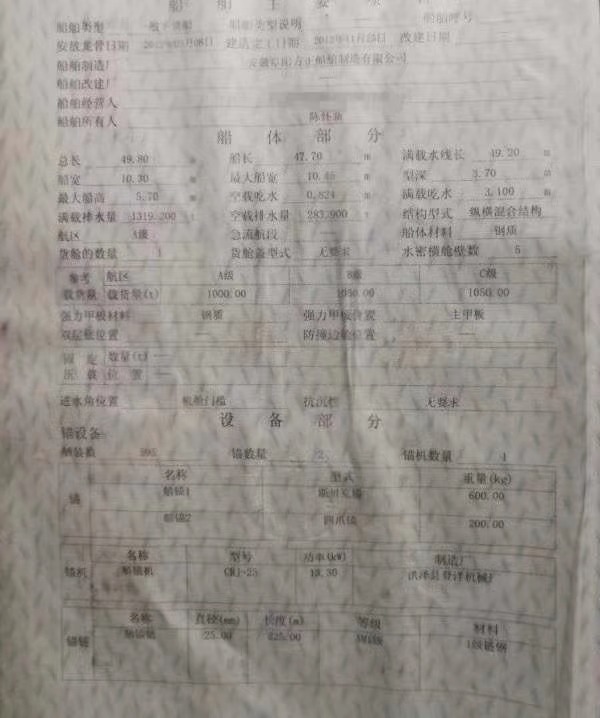 船舶主要项
船舶类型 船舶类型说明 船舶呼号
安放龙骨日期 建造完工日期 改建日期
船舶制造厂 船舶制造有限公司
船舶改建厂
船舶经营人
船舶所有人
船体部分
总长 49.80 m 船长 47.70 m 满载水线长 49.20 m
船宽 10.30 m 最大船宽 10.45 m 型深 3.70 m
最大船高 5.70 m 空载吃水 0.824 m 满载吃水 3.100 m
满载排水量 1319.200 t 空载排水量 283.900 t 结构型式 纵横混合结构
航区 A级 急流航段 船体材料 钢质
货舱的数量 1 货舱盖型式 无要求 水密横舱壁数 5
参考 航区 A级 B级 C级
载货量 载货量(t) 1000.00 1050.00 1050.00
强力甲板材料 钢质 强力甲板位置 主甲板
双层底位置 防撞边舱位置
固定 数量(t)
压载 位置
进水角位置 机舱门槛 抗沉性 无要求
设备部分
锚设备
舾装数 395 锚数量 2 锚机数量 1
名称 型式 重量(kg)
锚 艏锚1 600.00
艏锚2 四爪锚 200.00
名称 型号 功率(kW) 制造厂
锚机 艏锚机 13.30 洪泽县 机械厂
名称 直径(mm) 长度(m) 等级 材料
锚链 艏锚链 25.00 225.00 AM1级 1级链钢